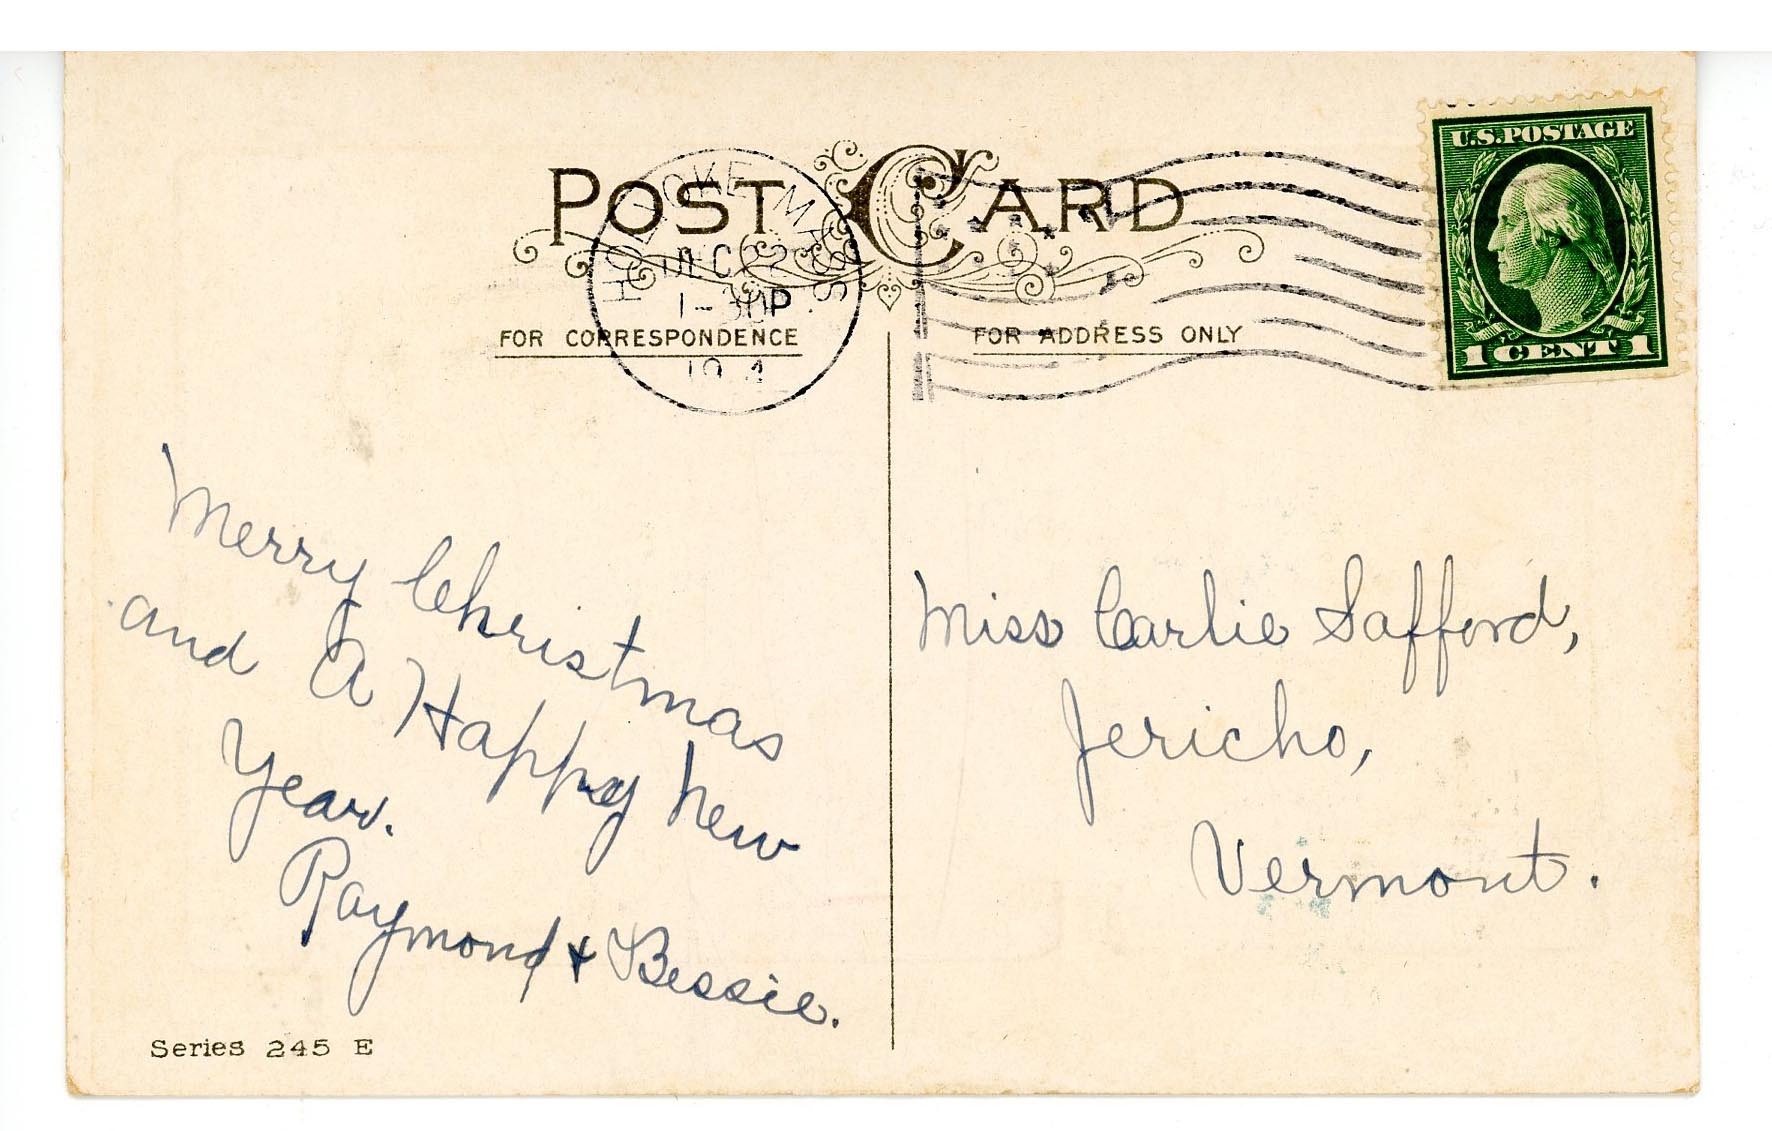 POST CARD
HOLYOKE MASS.
1-30P
U.S. POSTAGE
1 CENT 1
FOR CORRESPONDENCE
FOR ADDRESS ONLY
Merry Christmas
and A Happy New
Year.
Raymond & Bessie.
Miss Carlie Safford,
Jericho,
Vermont.
Series 245 E